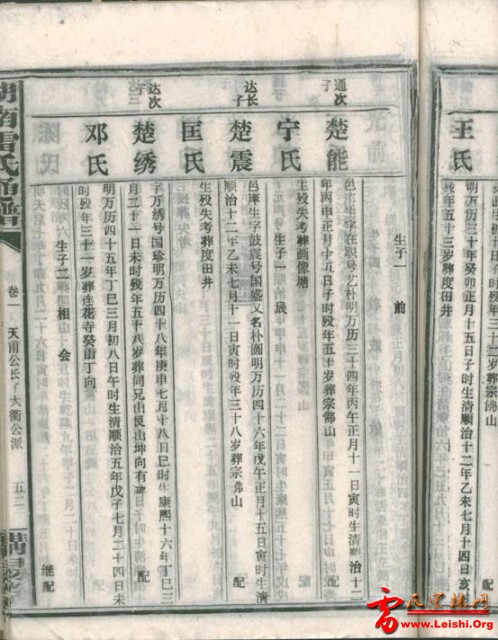 王氏
殁年五十三岁葬度田井
通次子
楚能
邑庠生字在职号艺朴明万历三十四年丙午正月十一日寅时生清顺治十二
年丙申正月十五日子时殁年五十岁葬宗佛山
配
生子一
宁氏
生殁失考葬画像塘
生子一
达长子
楚震
邑庠生字鼓震号国盛又名朴圆明万历四十六年戊午正月十五日寅时生清
顺治十二年乙未七月十一日寅时殁年三十八岁葬宗佛山
配
匡氏
生殁失考葬度田井
达次子
楚绣
字万绣号国珍明万历四十八年庚申七月十八日巳时生康熙十六年丁巳三
月二十一日未时殁年五十八岁葬同兄山艮山坤向有碑
配
邓氏
明万历四十五年丁巳三月初八日午时生清顺治五年戊子七月二十四日未
时殁年三十一岁葬莲花寺癸山丁向
生子二
相
会
继配
湖南雷氏通谱
卷一
天甫公长子大衢公派
雷氏宗亲网
www.Leishi.Org